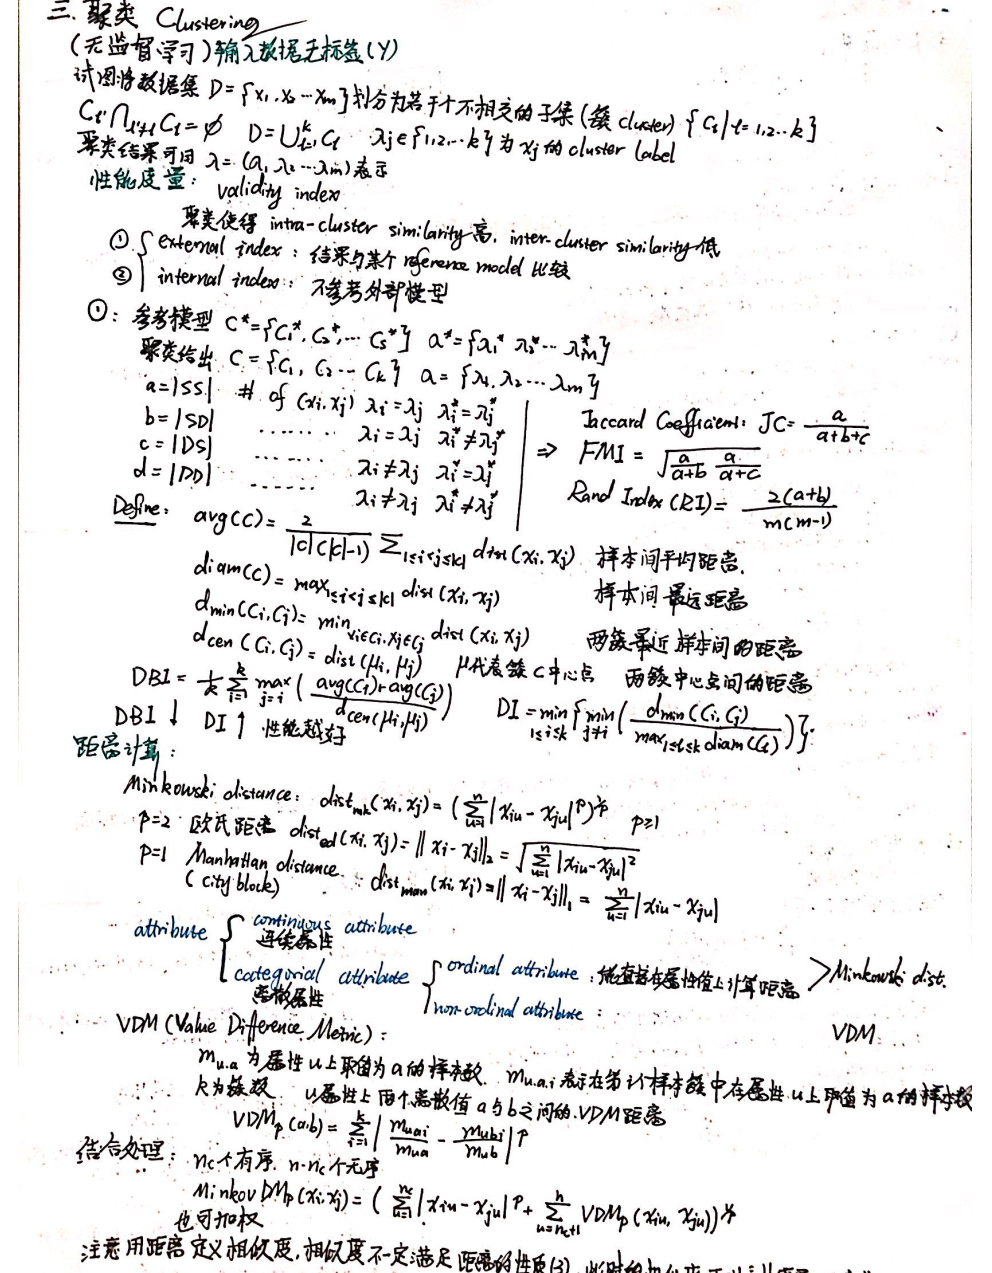 三. 聚类 Clustering
(无监督学习) 输入数据无标签(Y)
试图将数据集 D={x₁,x₂…xₘ}划分为若干个不相交的子集(簇 cluster) {Cₗ|l=1,2…k}
Cₗ'∩ₗ'≠ₗ Cₗ=∅ D=∪ᵏₗ₌₁Cₗ λj∈{1,2…k}为 xj 的 cluster label
聚类结果可用 λ=(λ₁,λ₂…λₘ)表示
性能度量:
validity index
聚类使得 intra-cluster similarity高, inter-cluster similarity低
① { external index: 结果与某个reference model 比较
② internal index: 不参考外部模型
①: 参考模型 C*={C₁*,C₂*,…Cₛ*} λ*={λ₁* λ₂*…λₘ*}
聚类给出 C={C₁,C₂…Cₖ} λ={λ₁,λ₂…λₘ}
a=|SS| # of (xi,xj) λi=λj λi*=λj*
b=|SD| …… λi=λj λi*≠λj*
c=|DS| …… λi≠λj λi*=λj*
d=|DD| …… λi≠λj λi*≠λj*
⇒ Jaccard Coefficient: JC= a/(a+b+c)
FMI = √(a/(a+b) a/(a+c))
Rand Index (RI)= 2(a+b)/(m(m-1))
Define: avg(C)= 2/(|C|(|C|-1)) Σ1≤i<j≤|C| dist(xi,xj) 样本间平均距离.
diam(C)=max1≤i<j≤|C| dist(xi,xj) 样本间最远距离
dmin(Ci,Cj)=min xi∈Ci,xj∈Cj dist(xi,xj) 两簇最近样本间的距离
dcen(Ci,Cj)=dist(μi,μj) μ代表簇C中心点 两簇中心点间的距离
DBI= 1/k Σᵏᵢ₌₁ max j≠i ((avg(Ci)+avg(Cj))/dcen(μi,μj)) DI=min 1≤i≤k {min j≠i (dmin(Ci,Cj)/max1≤l≤k diam(Cl))}.
DBI↓ DI↑ 性能越好
距离计算:
Minkowski distance: distmk(xi,xj)=(Σⁿᵤ₌₁|xiu-xju|ᵖ)^1/p p≥1
p=2 欧氏距离 disted(xi,xj)=‖xi-xj‖₂=√(Σⁿᵤ₌₁|xiu-xju|²)
p=1 Manhattan distance: distman(xi,xj)=‖xi-xj‖₁=Σⁿᵤ₌₁|xiu-xju|
(city block)
attribute { continuous attribute
连续属性
categorial attribute { ordinal attribute: 能直接在属性值上计算距离 > Minkowski dist.
离散属性
non-ordinal attribute: VDM
VDM (Value Difference Metric):
mu,a 为属性u上取值为a的样本数. mu,a,i 表示在第i个样本簇中在属性u上取值为a的样本数
k为簇数 u属性上两个离散值a与b之间的VDM距离
VDMp(a,b)=Σᵏᵢ₌₁|muai/mua - mubi/mub|ᵖ
结合处理: nc个有序. n-nc个无序
MinkovDMp(xi,xj)=(Σⁿᶜᵤ₌₁|xiu-xju|ᵖ+Σⁿᵤ₌ₙc₊₁VDMp(xiu,xju))^1/p
也可加权
注意用距离定义相似度,相似度不一定满足距离的性质(3),